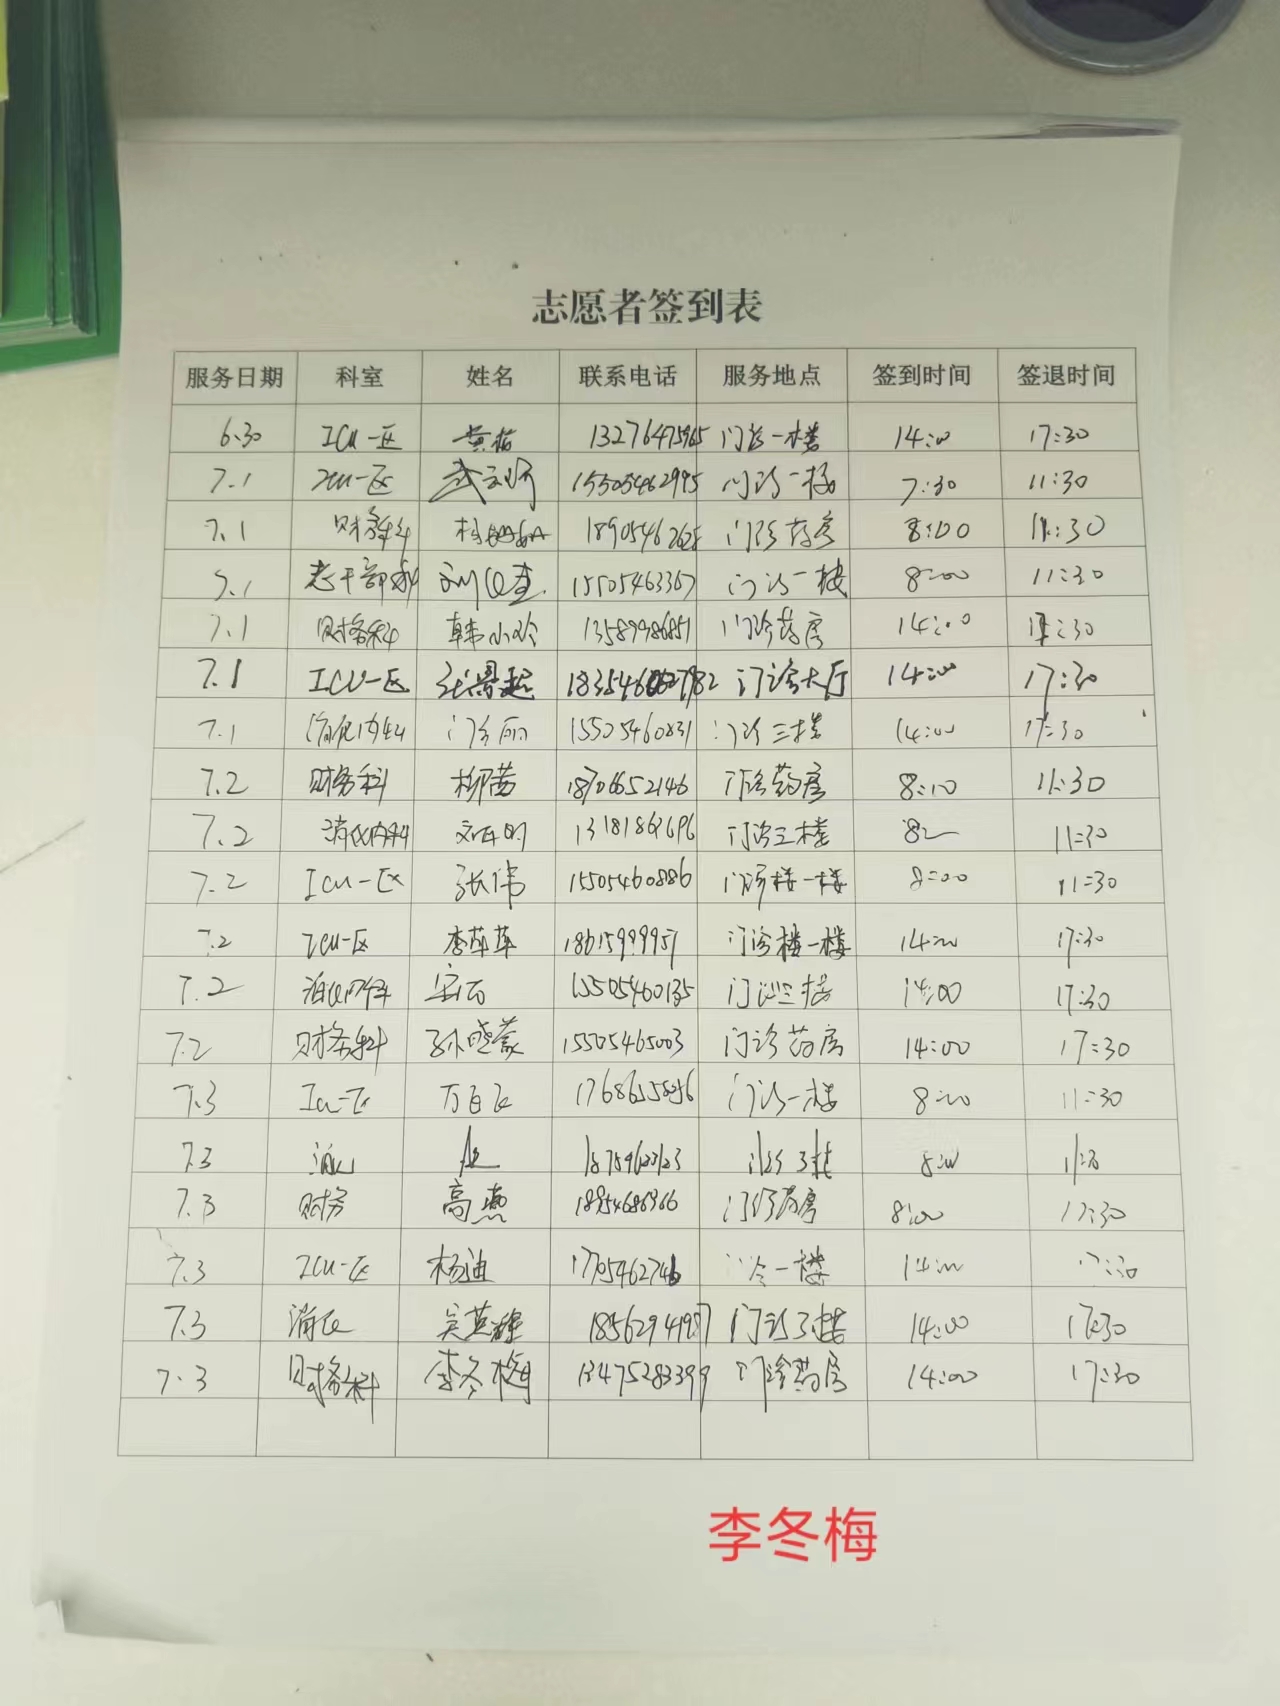 志愿者签到表
服务日期 科室 姓名 联系电话 服务地点 签到时间 签退时间
6.30 ICU一区 13276475965 门诊一楼 14:00 17:30
7.1 ICU一区 15505462995 门诊一楼 7:30 11:30
7.1 财务科 门诊药房 8:00 11:30
7.1 老干部科 15505463367 门诊一楼 8:00 11:30
7.1 财务科 韩小玲 13589986851 门诊药房 14:00 17:30
7.1 ICU一区 门诊大厅 14:00 17:30
7.1 消化内科 15505460831 门诊三楼 14:00 17:30
7.2 财务科 柳茜 18706652146 门诊药房 8:00 11:30
7.2 消化内科 13181867696 门诊三楼 11:30
7.2 ICU一区 张伟 15505460886 门诊楼一楼 8:00 11:30
7.2 ICU一区 李苹苹 18615999957 门诊楼一楼 14:00 17:30
7.2 消化内科 15505460135 门诊三楼 14:00 17:30
7.2 财务科 孙晓蒙 15505465003 门诊药房 14:00 17:30
7.3 ICU一区 门诊一楼 8:00 11:30
7.3 消化 门诊3楼 8:00
7.3 财务 高燕 18954686366 门诊药房 8:00
7.3 ICU一区 杨迪 门诊一楼 14:00 17:30
7.3 消化 吴英雄 门诊3楼 14:00 17:30
7.3 财务科 李冬梅 13475283399 门诊药房 14:00 17:30
李冬梅